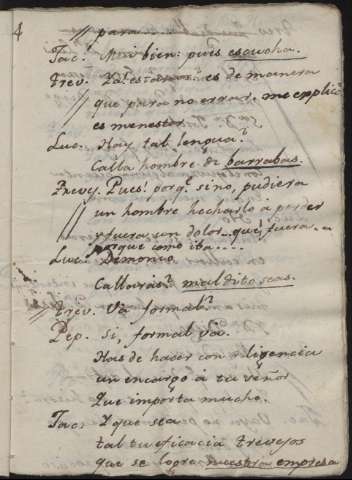 4
para....
Jac.^a Mui bien: pues escucha.
Trev. Ya! es de manera
que para no errar. me explic
es menester
Luc. Hay tal lengua?
Calla hombre de barrabas.
Trevej. Pues! porq.^e si no, pudiera
un hombre hecharlo à perder
y fuera un dolor.. que fuera..
porque como iba....
Luc. Demonio
Callaràs? maldito seas.
Trev. Va formal?
Pep. si, formal va.
Has de hacer con diligencia
un encargo à tu señor
Que importa mucho.
Jac. Y que sea
tal tu eficacia trevejos
que se logre nuestra empresa